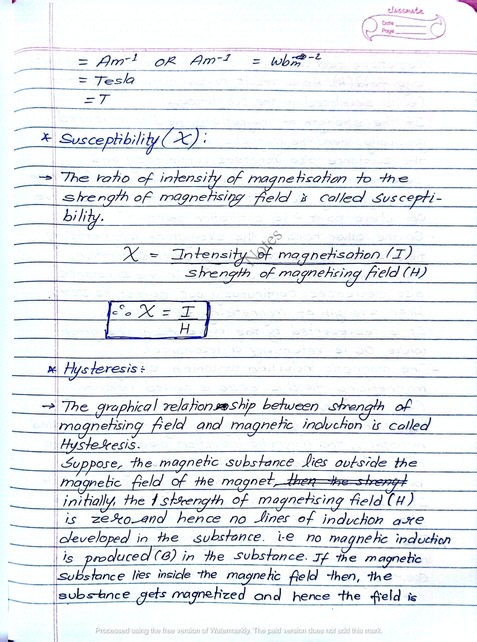 classmate
Date
Page
= Am⁻¹ OR Am⁻¹ = Wbm⁻²
= Tesla
= T
* Susceptibility (χ):
→ The ratio of intensity of magnetisation to the
strength of magnetising field is called Suscepti-
bility.
χ = Intensity of magnetisation (I)
strength of magnetising field (H)
∴ χ = I
H
* Hysteresis:
→ The graphical relationship between strength of
magnetising field and magnetic induction is called
Hysteresis.
Suppose, the magnetic substance lies outside the
magnetic field of the magnet, then the strengt
initially, the strength of magnetising field (H)
is zero and hence no lines of induction are
developed in the substance. i.e no magnetic induction
is produced (B) in the substance. If the magnetic
substance lies inside the magnetic field then, the
substance gets magnetized and hence the field is
Notes
Processed using the free version of Watermarkly. The paid version does not add this mark.